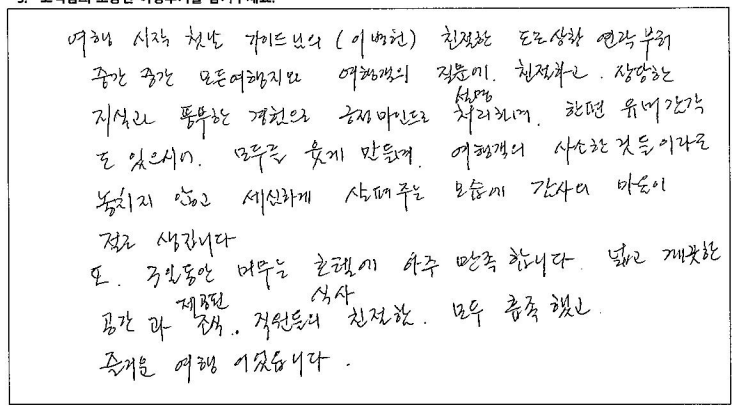 여행 시작 첫날 가이드님의 (이병헌) 친절한 도로상황 연락부터
중간 중간 모든여행지와 여행객의 질문에. 친절하고. 장당한
지식과 풍부한 경험으로 긍정마인드로 처리하며. 한편 유머감각
설명
도 있으시어. 모두를 웃게 만들며. 여행객의 사소한것들이라도
놓치지 않고 세심하게 살펴주는 모습에 감사의 마음이
절로 생깁니다
또. 3일동안 머무는 호텔에 아주 만족합니다. 넓고 깨끗한
공간과 조식. 직원들의 친절함. 모두 흡족했고.
제공된 식사
즐거운 여행 이었읍니다.